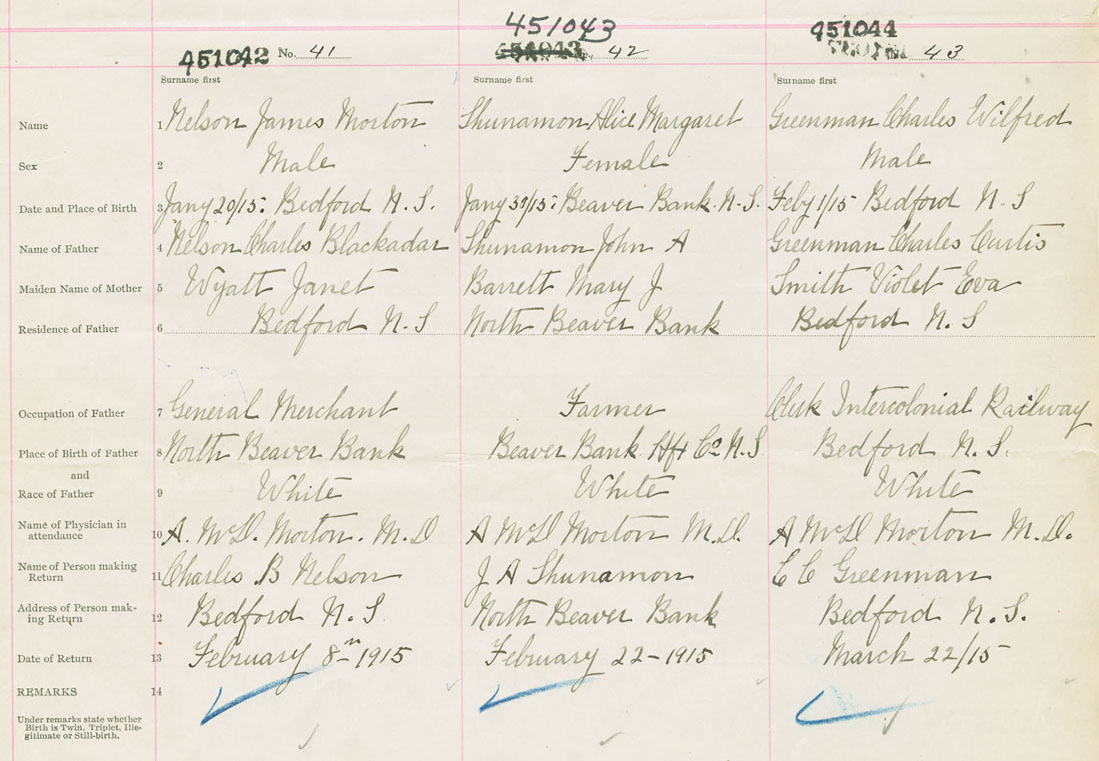 451043
451042 No. 41
451043 42
451044
43
Surname first Surname first Surname first
Name 1 Nelson James Morton Shunamon Alice Margaret Greenman Charles Wilfred
Sex 2 Male Female Male
Date and Place of Birth 3 Jany 20/15: Bedford N.S. Jany 31/15: Beaver Bank. N.S. Feby 1/15 Bedford N.S
Name of Father 4 Nelson Charles Blackadar Shunamon John A Greenman Charles Curtis
Maiden Name of Mother 5 Wyatt Janet Barrett Mary J Smith Violet Eva
Residence of Father 6 Bedford N.S North Beaver Bank Bedford N.S
Occupation of Father 7 General Merchant Farmer Clerk Intercolonial Railway
Place of Birth of Father 8 North Beaver Bank Beaver Bank Hfx Co N.S Bedford N.S.
and
Race of Father 9 White White White
Name of Physician in
attendance 10 A. McD. Morton. M.D A McD Morton M.D. A McD Morton M.D.
Name of Person making
Return 11 Charles B Nelson J A Shunamon C C Greenman
Address of Person mak-
ing Return 12 Bedford N.S North Beaver Bank Bedford N.S.
Date of Return 13 February 8th 1915 February 22-1915 March 22/15
REMARKS 14
Under remarks state whether
Birth is Twin, Triplet, Ille-
gitimate or Still-birth.